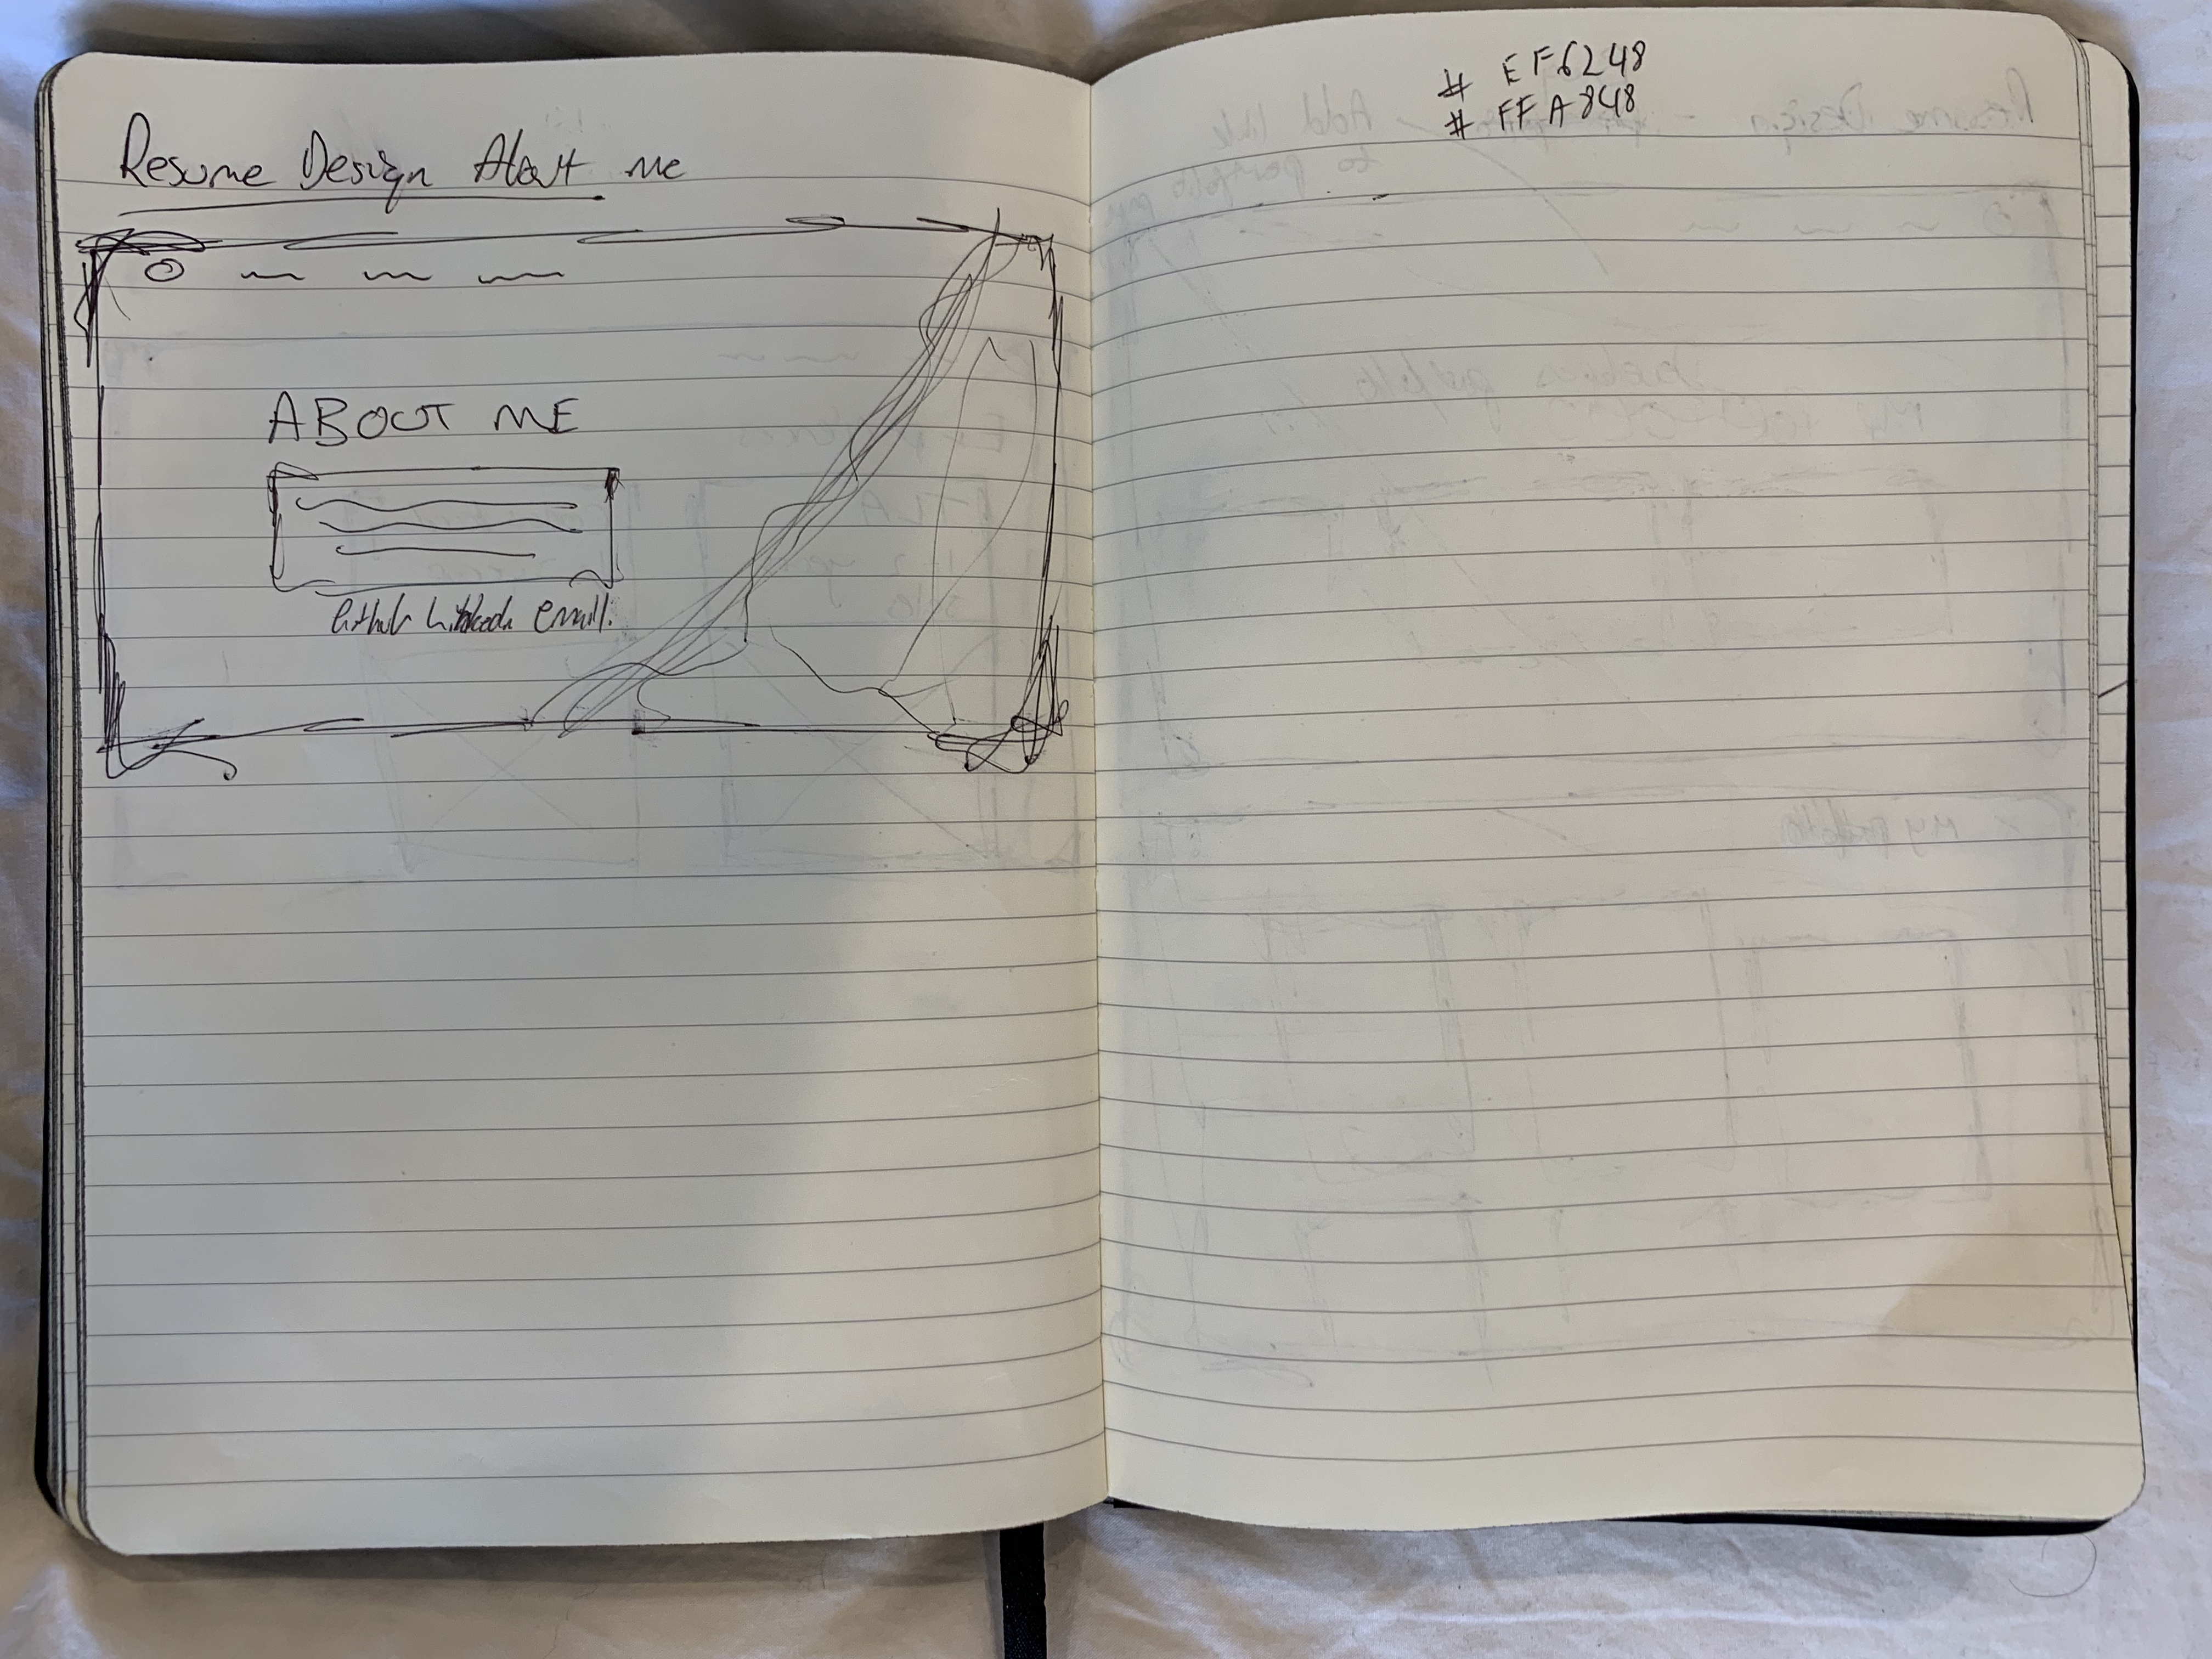 Resume Design About me
ABOUT ME
Github Linkedn email.
# EF6248
# FFA848